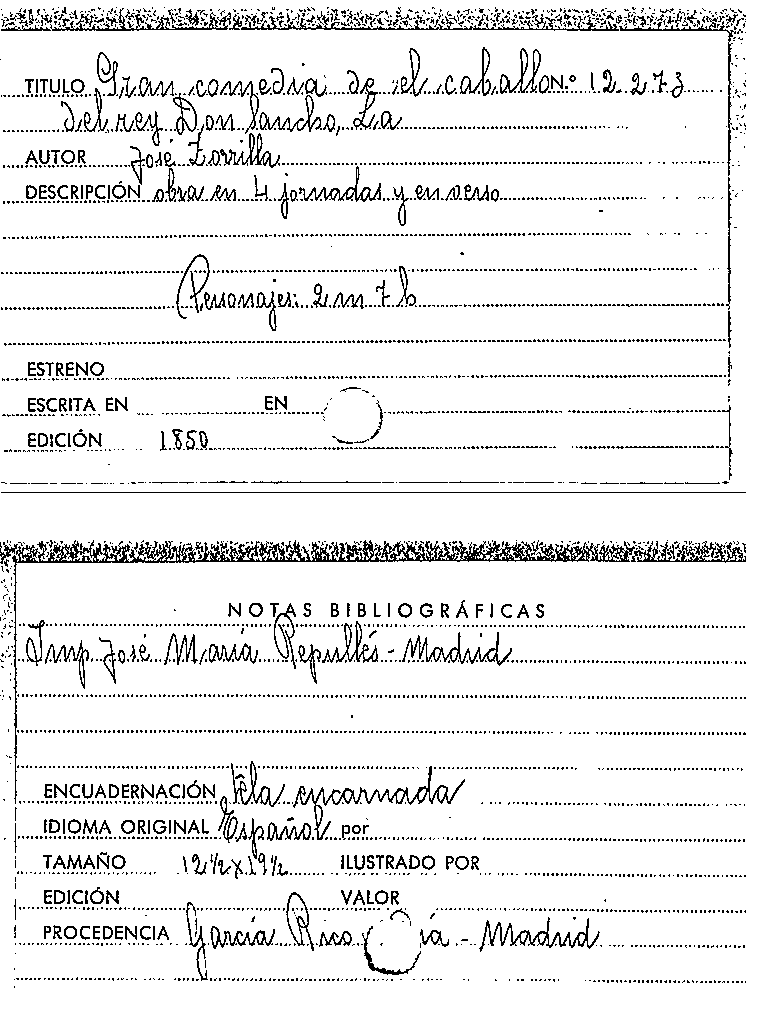 TITULO Gran comedia de el caballo N.º 12 273
del rey Don Sancho, La
AUTOR José Zorrilla
DESCRIPCIÓN obra en 4 jornadas y en verso
Personajes: 2 m 7 h
ESTRENO
ESCRITA EN EN
EDICIÓN 1850
NOTAS BIBLIOGRÁFICAS
Imp. José María Repullés - Madrid
ENCUADERNACIÓN tela encarnada
IDIOMA ORIGINAL Español por
TAMAÑO 12 1/2 x 19 1/2 ILUSTRADO POR
EDICIÓN VALOR
PROCEDENCIA García Rico - Madrid